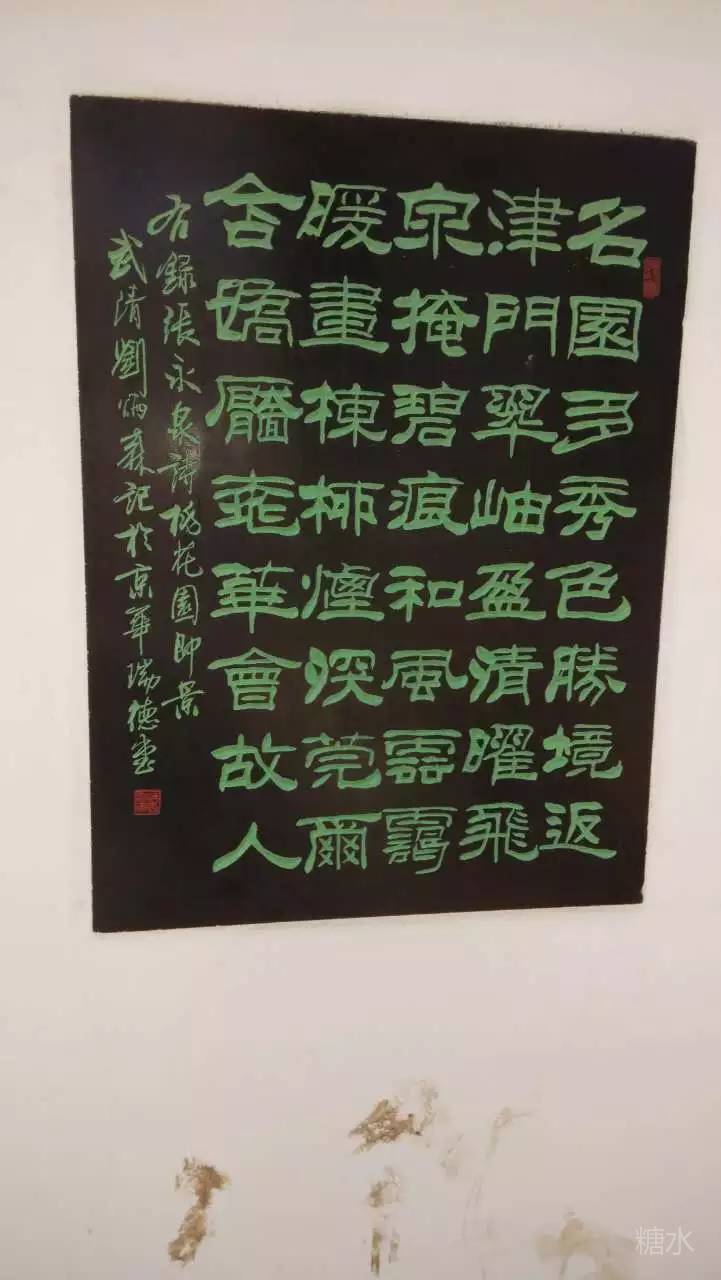 名園多秀色勝境返
津門翠岫盈清曜飛
泉掩碧痕和風雲靄
暖畫棟柳煙深莞爾
含嬌靨桃華會故人
右錄張永泉詩桃花園即景
武清劉炳森記於京華瑞德堂
糖水